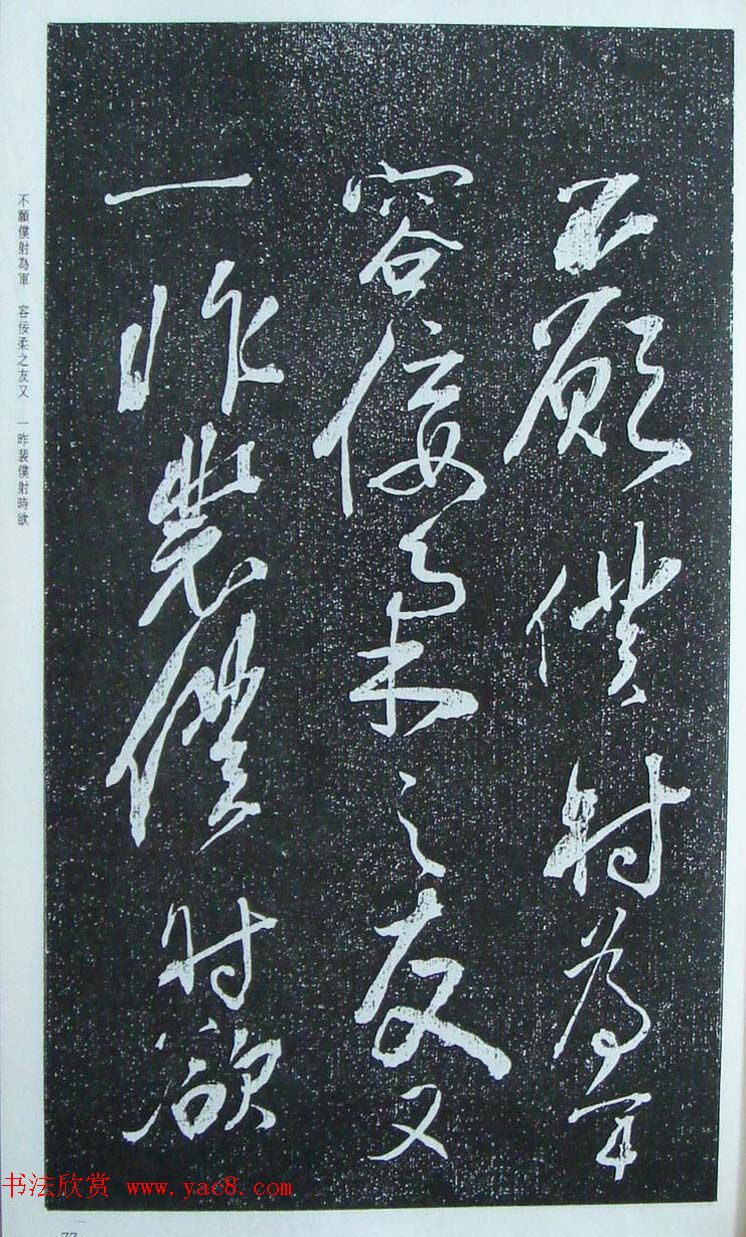 不願僕射為軍
容佞柔之友又
一昨裴僕射欲
不願僕射為軍 容佞柔之友又 一昨裴僕射時欲
书法欣赏 www.yac8.com